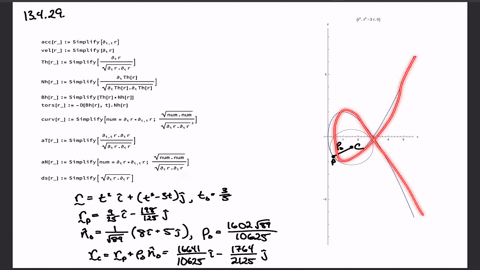 13.4.29
{t², t³ - 3 t, 0}
acc[r_] := Simplify[∂t,t r]
vel[r_] := Simplify[∂t r]
Th[r_] := Simplify[∂t r / √(∂t r.∂t r)]
Nh[r_] := Simplify[∂t Th[r] / √(∂t Th[r].∂t Th[r])]
Bh[r_] := Simplify[Th[r]×Nh[r]]
tors[r_] := -D[Bh[r], t].Nh[r]
curv[r_] := Simplify[num = ∂t r×∂t,t r; √(num.num) / (∂t r.∂t r)
aT[r_] := Simplify[∂t,t r.∂t r / √(∂t r.∂t r)]
aN[r_] := Simplify[num = ∂t r×∂t,t r; √(num.num) / √(∂t r.∂t r)]
ds[r_] := Simplify[√(∂t r.∂t r)]
r = t² î + (t³-3t) ĵ, t₀ = 3/5
r_p = 9/25 î - 198/125 ĵ
N̂₀ = 1/√89 (8î + 5ĵ), ρ₀ = 1602√89/10625
r_c = r_p + ρ₀ N̂₀ = 16641/10625 î - 1764/2125 ĵ
ρ₀
C
P